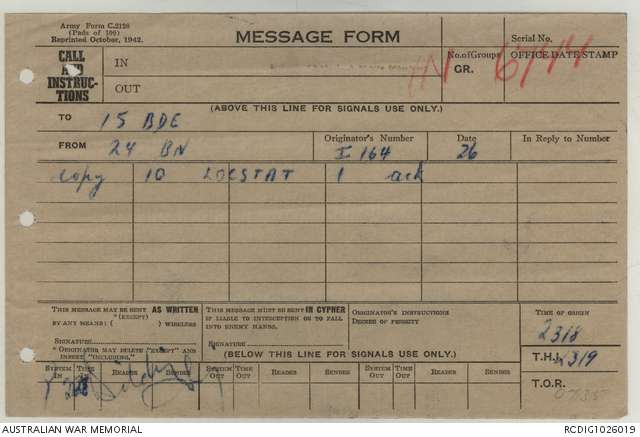 Army Form C.2128
(Pads of 100)
Reprinted October, 1942.
MESSAGE FORM
Serial No.
CALL AND INSTRUC-TIONS
IN
OUT
No. of Groups
GR.
OFFICE DATE STAMP
IN 6744
(ABOVE THIS LINE FOR SIGNALS USE ONLY.)
TO 15 BDE
FROM 24 BN
Originator's Number
I 164
Date
26
In Reply to Number
copy 10 LOCSTAT 1 ack
THIS MESSAGE MAY BE SENT AS WRITTEN
*(EXCEPT)
BY ANY MEANS: ( ) WIRELESS
SIGNATURE
* ORIGINATOR MAY DELETE "EXCEPT" AND
INSERT "INCLUDING."
THIS MESSAGE MUST BE SENT IN CYPHER
IF LIABLE TO INTERCEPTION OR TO FALL
INTO ENEMY HANDS.
SIGNATURE
ORIGINATOR'S INSTRUCTIONS
DEGREE OF PRIORITY
TIME OF ORIGIN
2318
T.H.I. 2319
T.O.R.
(BELOW THIS LINE FOR SIGNALS USE ONLY.)
SYSTEM IN TIME IN READER SENDER SYSTEM OUT TIME OUT READER SENDER SYSTEM OUT TIME OUT READER SENDER
AUSTRALIAN WAR MEMORIAL
RCDIG1026019